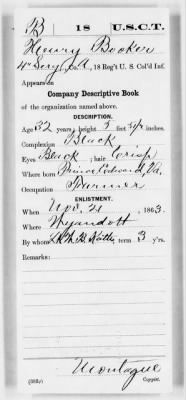 B | 18 | U.S.C.T.
Henry Booker
4" Serg, Co. A, 18 Reg't U. S. Col'd Inf.
Appears on
Company Descriptive Book
of the organization named above.
DESCRIPTION.
Age 32 years; height 5 feet inches.
Complexion Black
Eyes Black; hair Crisp
Where born Prince Edward, Va.
Occupation Farmer
ENLISTMENT.
When Nov. 21, 1863.
Where Wyandott
By whom term 3 y'rs.
Remarks:
Montague
Copyist.